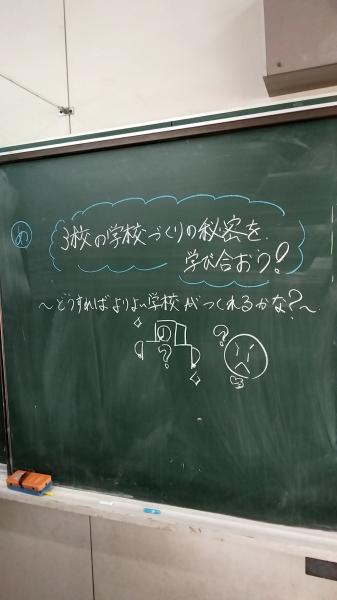 め
3校の学校づくりの秘密を
学び合おう!
～どうすればよりよい学校がつくれるかな?～
?
?